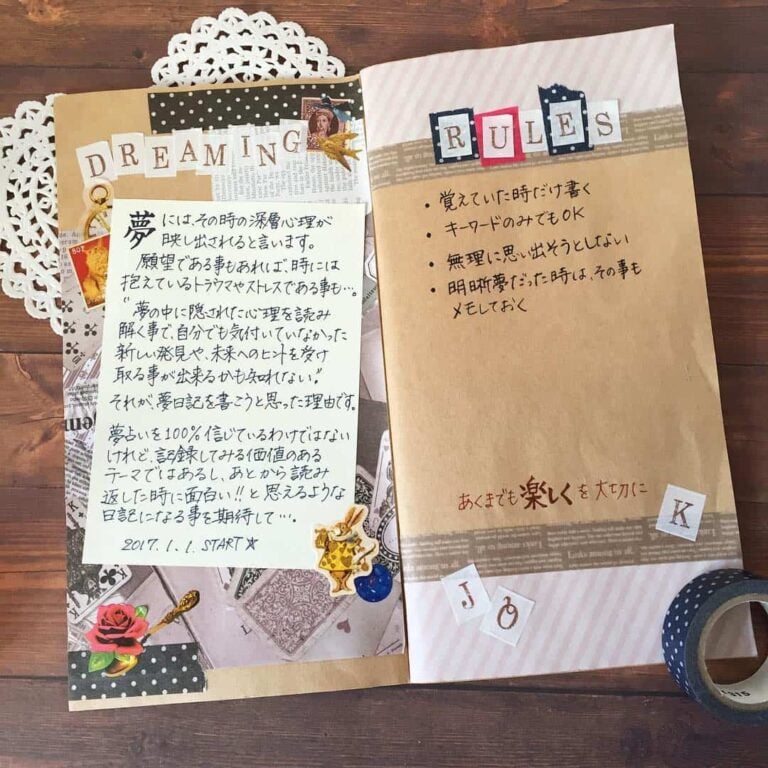 DREAMING
夢には、その時の深層心理が
映し出されると言います。
願望である事もあれば、時には
抱えているトラウマやストレスである事も…。
“夢の中に隠された心理を読み
解く事で、自分でも気付いていなかった
新しい発見や、未来へのヒントを受け
取る事が出来るかも知れない”
それが、夢日記を書こうと思った理由です。
夢占いを100%信じているわけではない
けれど、記録してみる価値のある
テーマではあるし、あとから読み
返した時に面白い!!と思えるような
日記になる事を期待して…。
2017.1.1.START☆
RULES
• 覚えていた時だけ書く
• キーワードのみでもOK
• 無理に思い出そうとしない
• 明晰夢だった時は、その事も
メモしておく
あくまでも楽しくを大切に
K
J
O